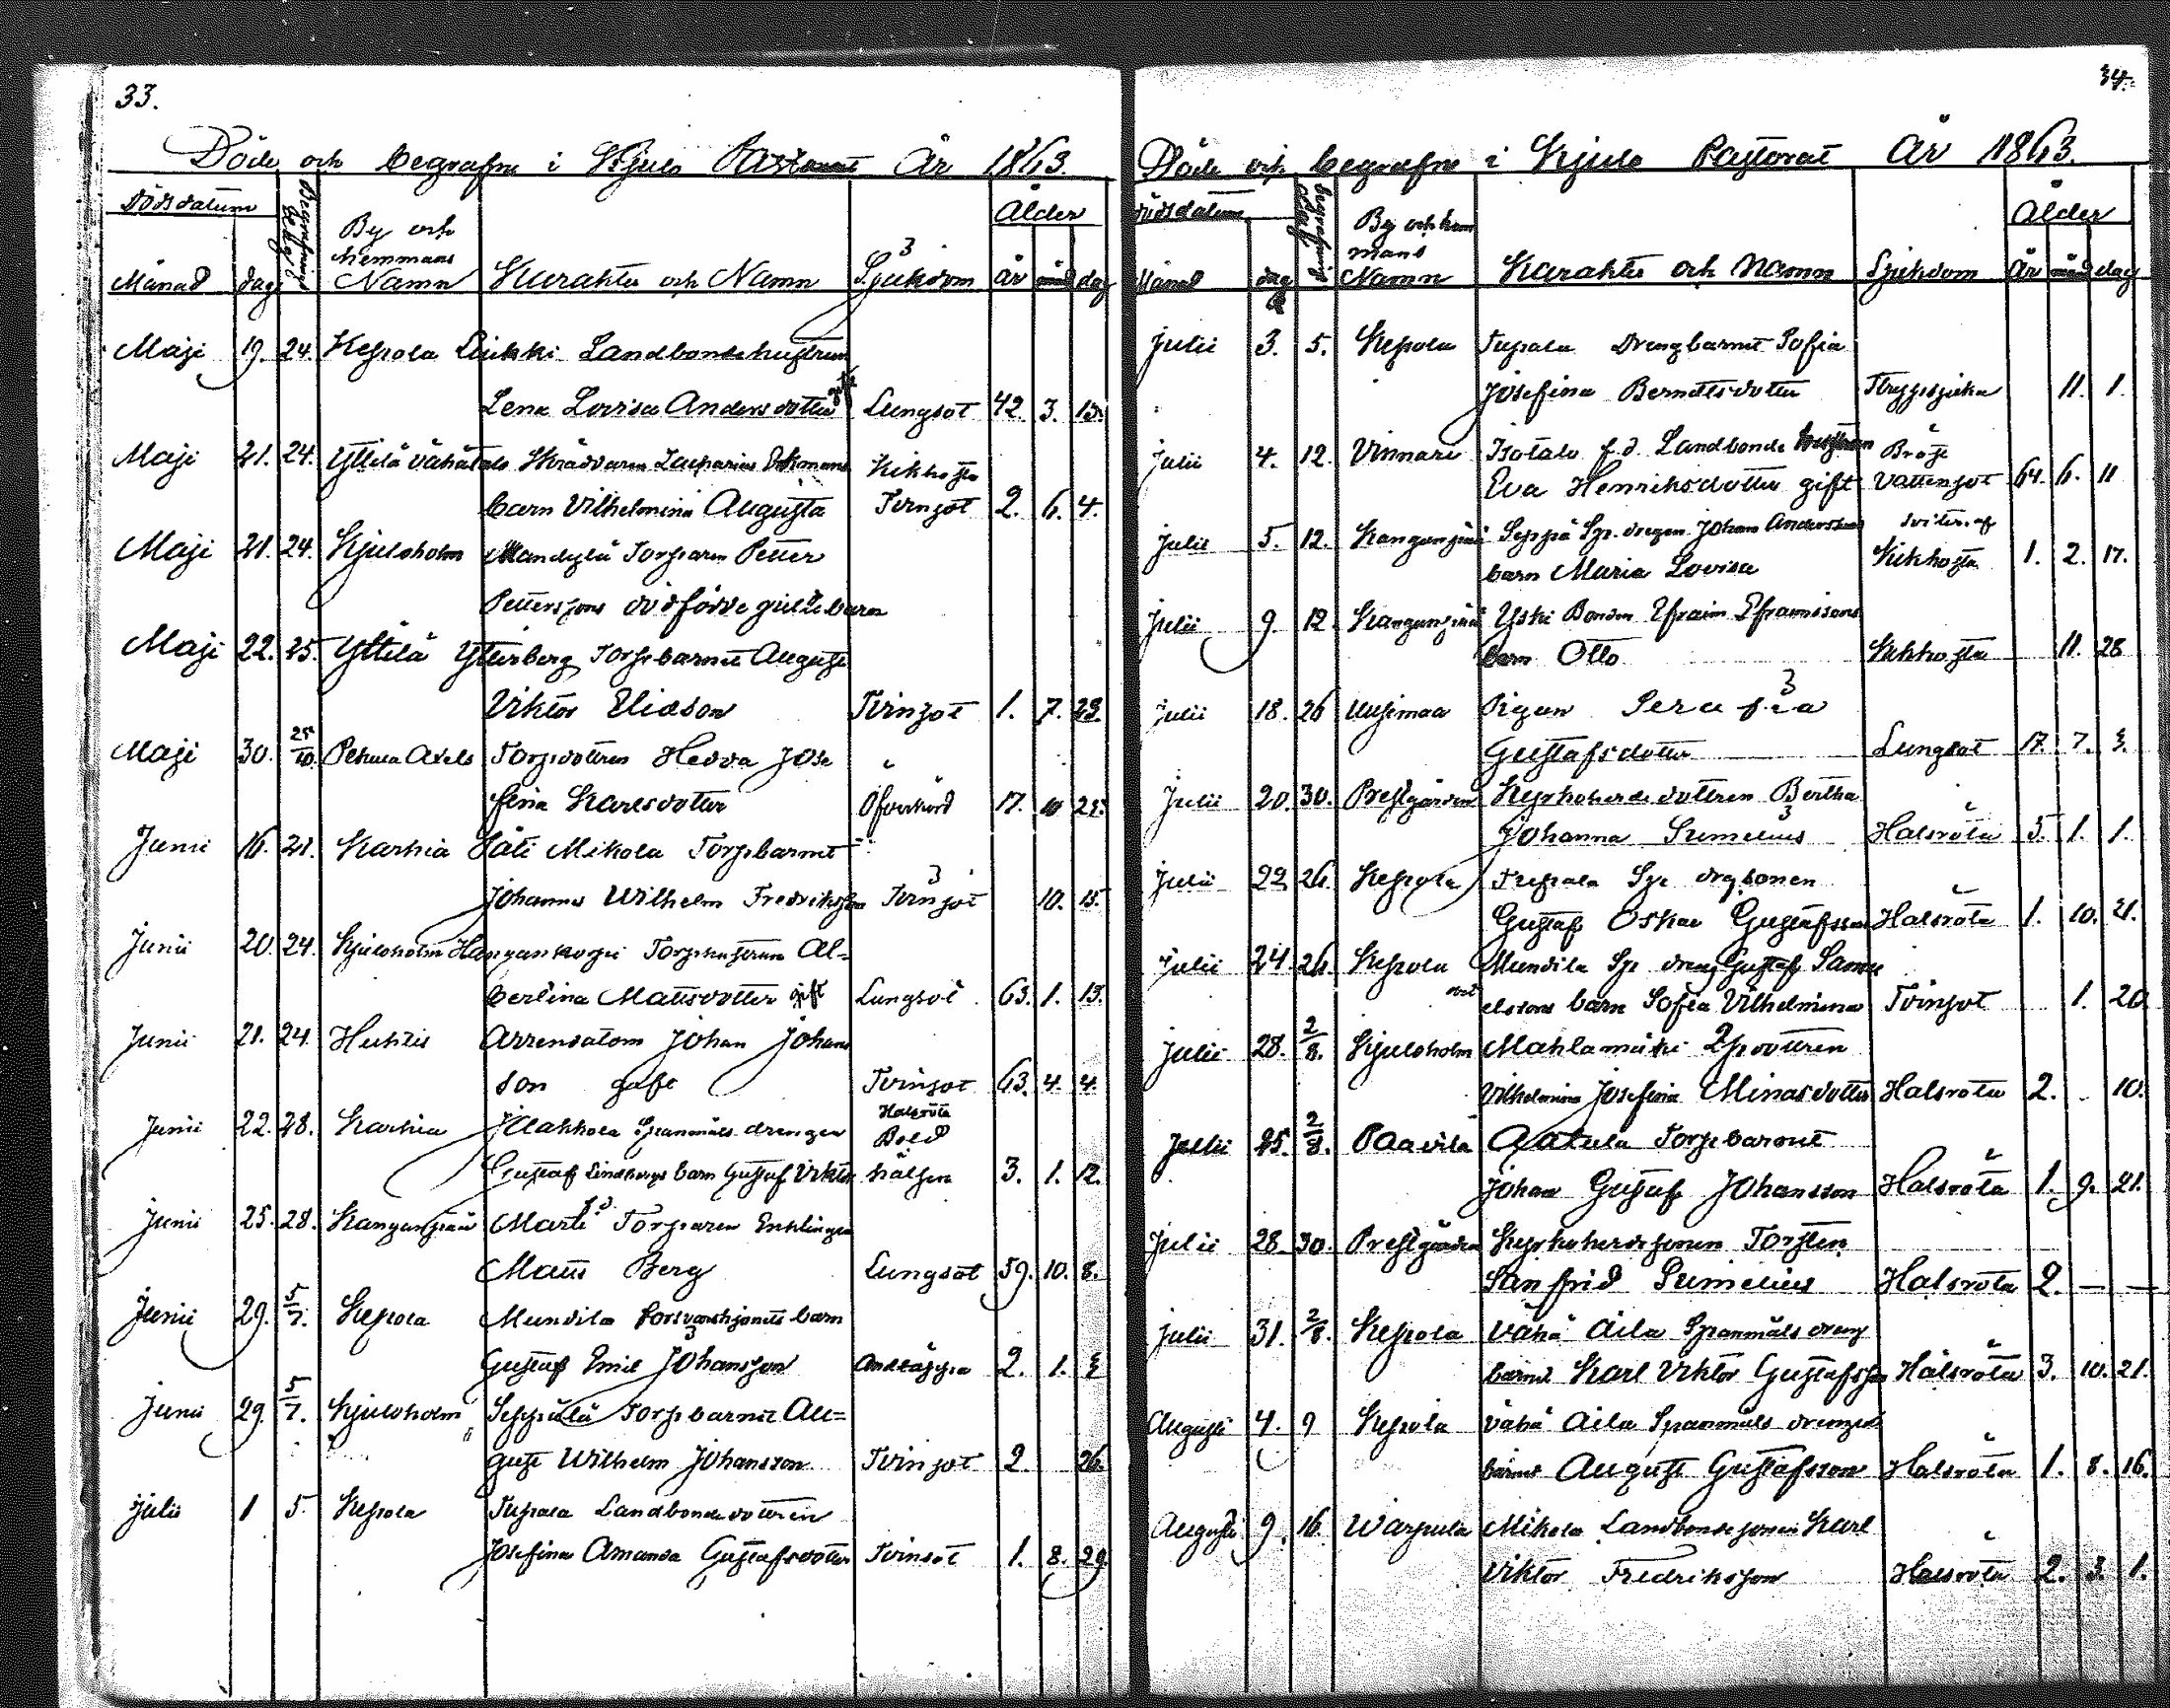 33.
Döde och begrafne i Kjulo Pastorat År 1863.
Dödsdatum Begrafningsdag By och hemmans Namn Karakter och Namn Sjukdom Ålder
Månad dag år månad dag
Maji 19. 24. Kepola Liukki Landbondehustrun
Lena Lovisa Andersdotter gift Lungsot 42. 3. 13.
Maji 21. 24. Yttilä Vähätalo Skräddaren Zacharias Ekmans Kikhosta
barn Vilhelmina Augusta Tvinsot 2. 6. 4.
Maji 21. 24. Kjuloholm Torparen Petter
Petterssons dödfödde gossebarn
Maji 22. 25. Yttilä Ytterberg Torpbarnet August
Viktor Eliasson Tvinsot 1. 7. 23.
Maji 30. Axels Torpdottren Hedda Jose
fina Karlsdotter Öfverkörd 17. 10 25.
Junii 16. 21. Karhia Häti Mikola Torpbarnet
Johannes Wilhelm Fredriksson Tvinsot 10. 15.
Junii 20. 24. Kjuloholm Hangankorpi Torphustrun Al=
bertina Mattsdotter gift Lungsot 63. 1. 13.
Junii 21. 24. Huhtis Arrendatorn Johan Johans
son gift Tvinsot 63. 4. 4.
Junii 22. 28. Karhia Hakkola Spanmåls drengen Halsröta Böld
Gustaf Lindbergs barn Gustaf Viktor i hålsen 3. 1. 12.
Junii 25. 28. Kanganpää Martti f.d. Torparen Enklingen
Matts Berg Lungsot 59. 10. 8.
Junii 29. 5/7. Kepola Mundila barn
Gustaf Emil Johansson Andtäppa 2. 1. 3
Junii 29. 5/7. Kjuloholm Seppälä Torpbarnet Au=
gust Wilhelm Johansson Tvinsot 2 26.
Julii 1 5 Kepola Tupala Landbondedottren
Josefina Amanda Gustafsdotter Tvinsot 1. 8. 29.
34.
Döde och begrafne i Kjulo Pastorat År 1863.
Dödsdatum Begrafningsdag By och hem mans Namn Karakter och Namn Sjukdom Ålder
Månad dag År månad dag
Julii 3. 5. Kepola Tupala Drengbarnet Sofia
Josefina Berndtsdotter 11. 1.
Julii 4. 12. Vinnari Isotalo f.d. Landbonde hustrun Bröst
Eva Henriksdotter gift Vattensot 64. 6. 11
Julii 5. 12. Kanganpää Seppä Sp. drengen Johan Anderssons
barn Maria Lovisa Kikhosta 1. 2. 17.
Julii 9 12 Kanganpää Uski Bonden Efraim Efraimssons
barn Otto Kikhosta 11. 28
Julii 18. 26 Uusimaa Pigan Serafia
Gustafsdotter Lungsot 17. 7. 3.
Julii 20. 30. Prestgården Kyrkoherde dottren Bertha
Johanna Sumelius Halsröta 5. 1. 1.
Julii 22 26. Kepola Tupala Sp. drgsonen
Gustaf Oskar Gustafsson Halsröta 1. 10. 21.
Julii 24. 26. Kepola Mundila Sp drengs Gustaf Samu
elssons barn Sofia Vilhelmina Tvinsot 1. 20
Julii 28. 2/8. Kjuloholm Mahlamäki dottren
Vilhelmina Josefina Minasdotter Halsröta 2. . 10.
Julii 25. 2/8. Paavila Aatula Torpbarnet
Johan Gustaf Johansson Halsröta 1. 9. 21.
Julii 28. 30. Prestgården Kyrkoherdesonen Torsten
Sanfrid Sumelius Halsröta 2. — —
Julii 31. 2/8. Kepola Vähä Äila Spanmåls dreng
barnet Karl Viktor Gustafsson Halsröta 3. 10. 21.
Augusti 4. 9 Kepola Vähä Äila Spanmåls drengs
barnet August Gustafsson Halsröta 1. 8. 16.
Augusti 9. 16. Warpula Mikola Landbondesonen Karl
Viktor Fredriksson Halsröta 2. 3. 1.